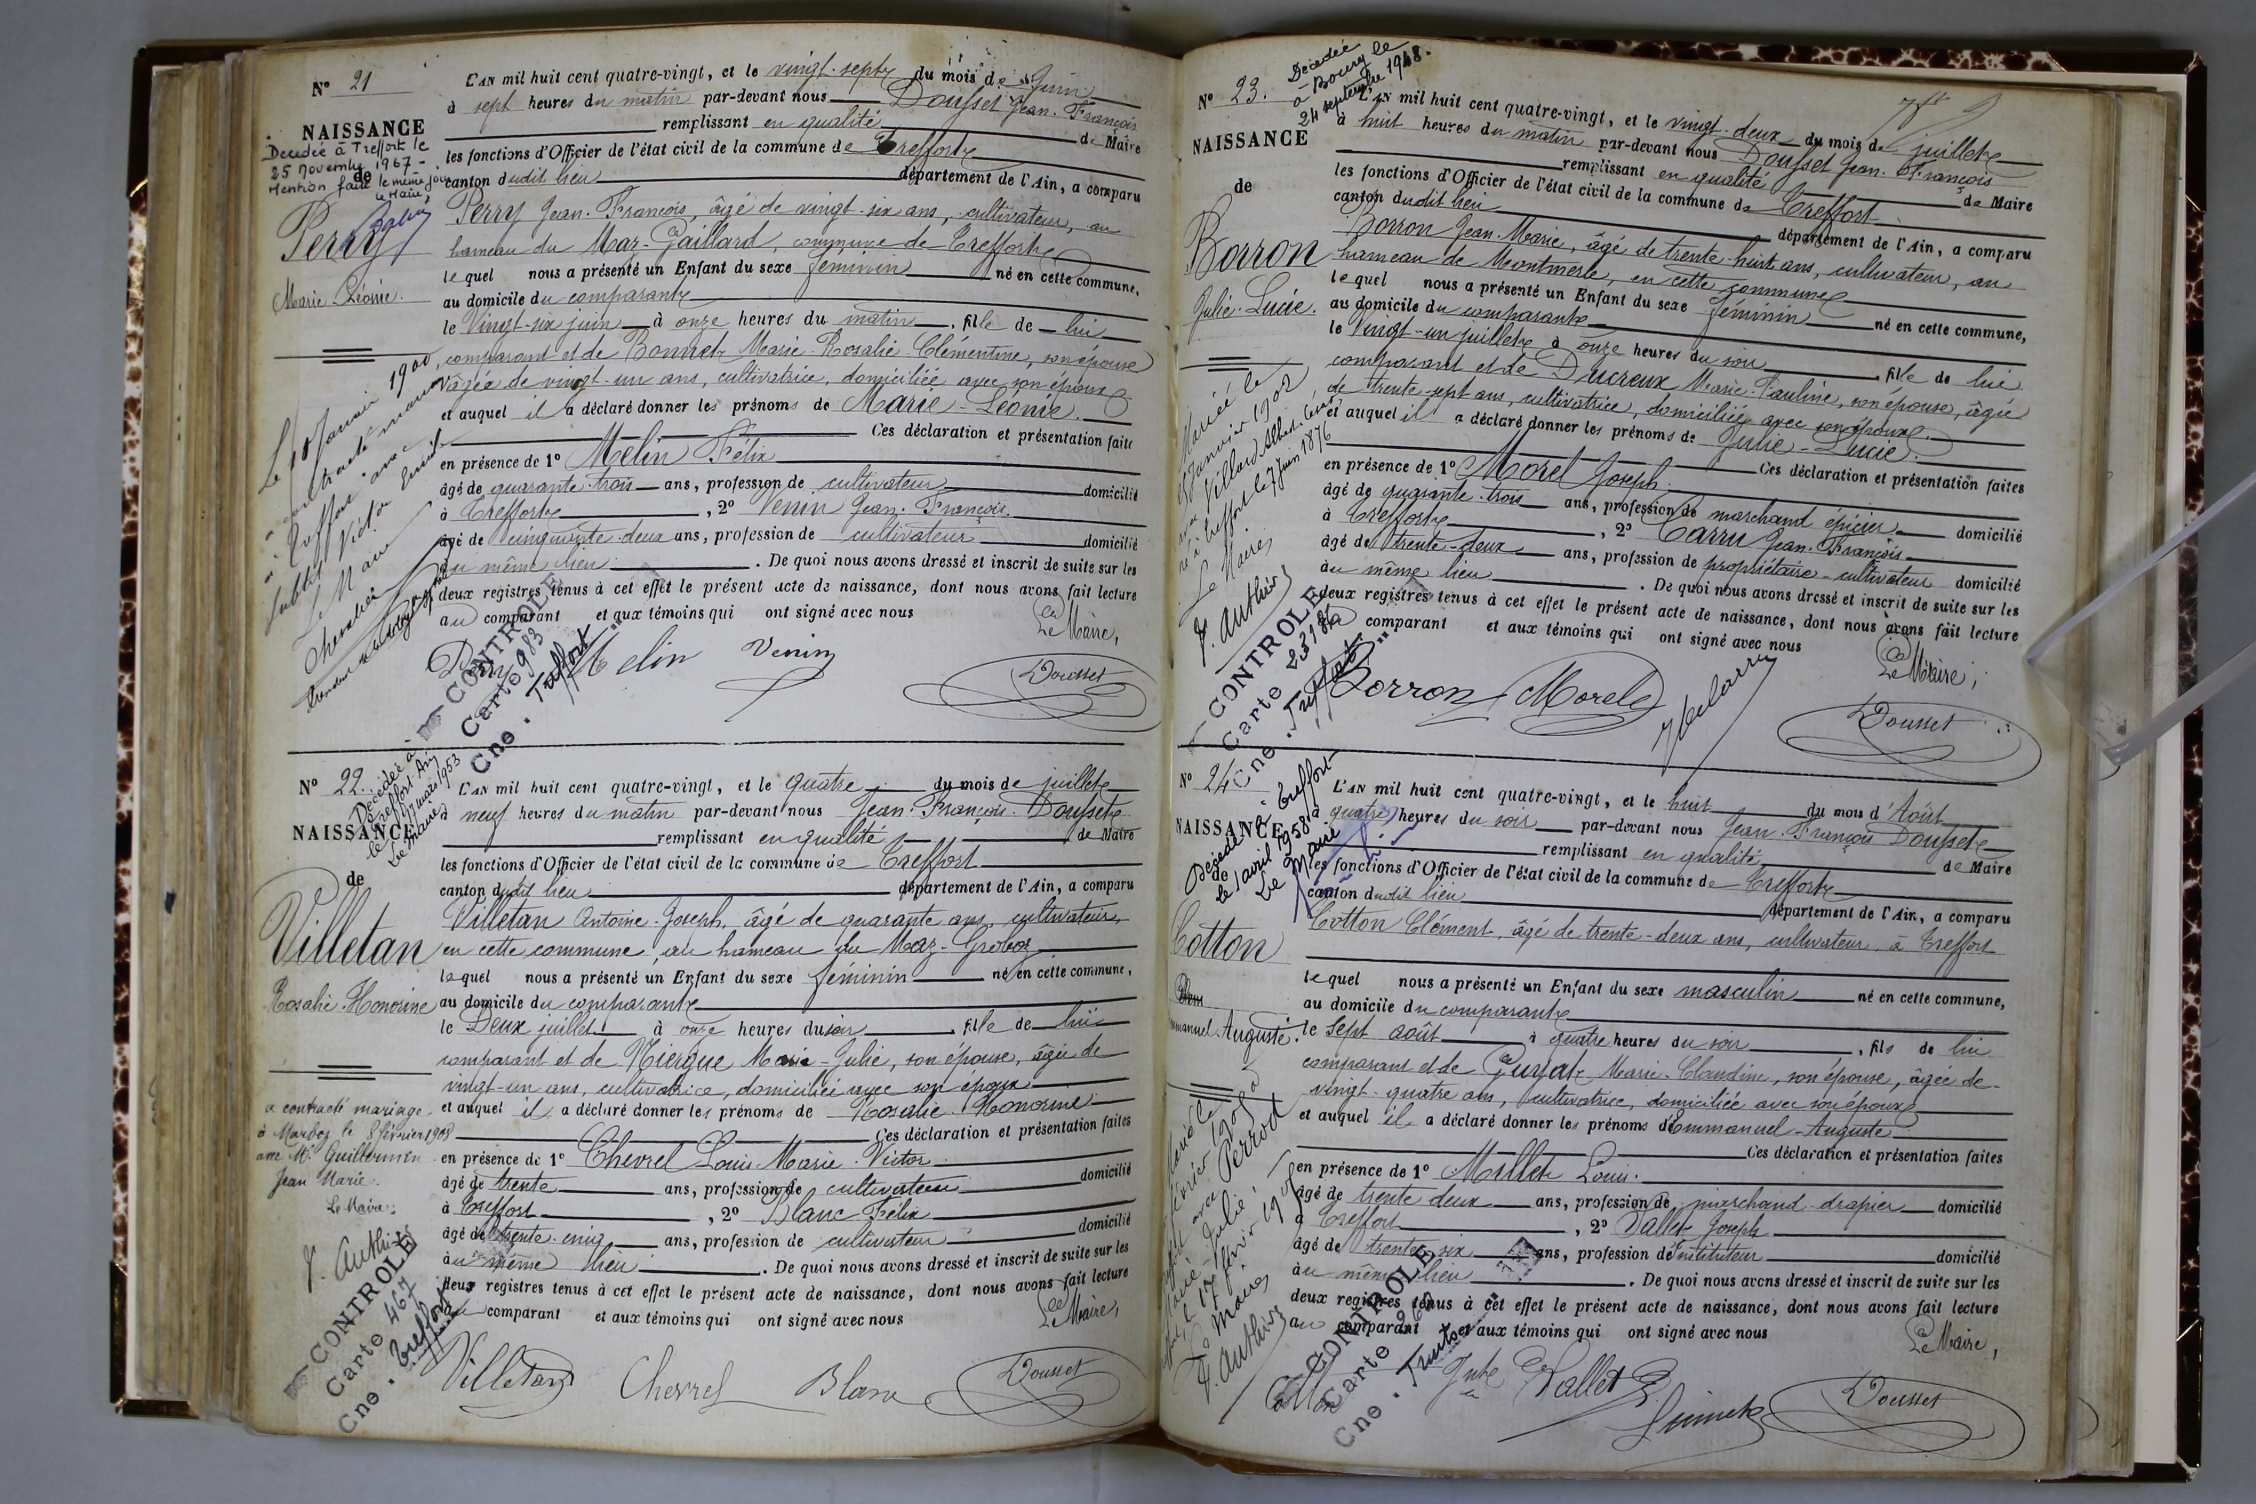 N° 21
NAISSANCE
Décédée à Treffort le
25 Novembre 1967 -
de
Mention faite le même jour
le Maire,
Perry
Marie Léonie.
Le 18 Janvier 1900,
a contracté mariage
à Treffort avec
Victor Emile
Le Maire
Chevalier
L'AN mil huit cent quatre-vingt, et le vingt-sept du mois de Juin
à sept heures du matin par-devant nous Dousset Jean-François
remplissant en qualité de Maire
les fonctions d'Officier de l'état civil de la commune de Treffort
canton dudit lieu département de l'Ain, a comparu
Perry Jean-François, âgé de vingt-six ans, cultivateur, au
hameau du Maz-Gaillard, commune de Treffort
lequel nous a présenté un Enfant du sexe féminin né en cette commune,
au domicile du comparant
le Vingt-six juin à onze heures du matin, fille de lui
comparant et de Bonnet Marie-Rosalie-Clémentine, son épouse
âgée de vingt-un ans, cultivatrice, domiciliée avec son époux
et auquel il a déclaré donner les prénoms de Marie-Léonie.
Ces déclaration et présentation faites
en présence de 1° Melin Félix
âgé de quarante-trois ans, profession de cultivateur domicilié
à Treffort, 2° Venin Jean-François.
âgé de cinquante-deux ans, profession de cultivateur domicilié
au même lieu. De quoi nous avons dressé et inscrit de suite sur les
deux registres tenus à cet effet le présent acte de naissance, dont nous avons fait lecture
au comparant et aux témoins qui ont signé avec nous
Le Maire,
Perry Melin Venin Dousset
CONTROLE
Carte 983
Cne. Treffort
N° 22
NAISSANCE
Décédée à
Treffort Ain
le 17 mars 1953
Le Maire
de
Villetan
Rosalie-Honorine
a contracté mariage
à Marboz le 8 février 1908
avec Mr Guillermin
Jean Marie.
Le Maire
J. Authier
CONTROLE
Carte 467
Cne. Treffort
L'AN mil huit cent quatre-vingt, et le quatre du mois de juillet
à neuf heures du matin par-devant nous Jean-François Dousset
remplissant en qualité de Maire
les fonctions d'Officier de l'état civil de la commune de Treffort
canton dudit lieu département de l'Ain, a comparu
Villetan Antoine-Joseph, âgé de quarante ans, cultivateur,
en cette commune, au hameau du Maz-Groboz
lequel nous a présenté un Enfant du sexe féminin né en cette commune,
au domicile du comparant
le Deux juillet à onze heures du soir, fille de lui
comparant et de Niergue Marie-Julie, son épouse, âgée de
vingt-un ans, cultivatrice, domiciliée avec son époux
et auquel il a déclaré donner les prénoms de Rosalie-Honorine
Ces déclaration et présentation faites
en présence de 1° Chevrel Louis-Marie-Victor
âgé de trente ans, profession de cultivateur domicilié
à Treffort, 2° Blanc Félix
âgé de trente-cinq ans, profession de cultivateur domicilié
au même lieu. De quoi nous avons dressé et inscrit de suite sur les
deux registres tenus à cet effet le présent acte de naissance, dont nous avons fait lecture
au comparant et aux témoins qui ont signé avec nous
Le Maire,
Villetan Chevrel Blanc Dousset
N° 23.
Décédée
à Bourg le
24 septembre 1948.
NAISSANCE
de
Borron
Julie-Lucie.
Mariée le
Janvier 1902
avec Villard Albert
né à Treffort le 7 Juin 1876
Le Maire,
J. Authier
CONTROLE
Carte
Cne. Treffort
L'AN mil huit cent quatre-vingt, et le vingt-deux du mois de juillet
à huit heures du matin par-devant nous Dousset Jean-François
remplissant en qualité de Maire
les fonctions d'Officier de l'état civil de la commune de Treffort
canton dudit lieu département de l'Ain, a comparu
Borron Jean-Marie, âgé de trente-huit ans, cultivateur, au
hameau de Montmerle, en cette commune
lequel nous a présenté un Enfant du sexe féminin né en cette commune,
au domicile du comparant
le Vingt-un juillet à onze heures du soir, fille de lui
comparant et de Ducreux Marie-Pauline, son épouse, âgée
de trente-sept ans, cultivatrice, domiciliée avec son époux
et auquel il a déclaré donner les prénoms de Julie-Lucie.
Ces déclaration et présentation faites
en présence de 1° Morel Joseph
âgé de quarante-trois ans, profession de marchand épicier domicilié
à Treffort, 2° Carru Jean-François
âgé de trente-deux ans, profession de propriétaire-cultivateur domicilié
au même lieu. De quoi nous avons dressé et inscrit de suite sur les
deux registres tenus à cet effet le présent acte de naissance, dont nous avons fait lecture
comparant et aux témoins qui ont signé avec nous
Le Maire,
Borron Morel Dousset
N° 24
NAISSANCE
Décédé à Treffort
le 1 avril 1958
Le Maire
de
Cotton
Emmanuel-Auguste.
avec Perrod
Le Maire
J. Authier
CONTROLE
Carte
Cne.
L'AN mil huit cent quatre-vingt, et le huit du mois d'Août
à quatre heures du soir par-devant nous Jean-François Dousset
remplissant en qualité de Maire
les fonctions d'Officier de l'état civil de la commune de Treffort
canton dudit lieu département de l'Ain, a comparu
Cotton Clément, âgé de trente-deux ans, cultivateur, à Treffort
lequel nous a présenté un Enfant du sexe masculin né en cette commune,
au domicile du comparant
le Sept août à quatre heures du soir, fils de lui
comparant et de Guyat Marie-Claudine, son épouse, âgée de
vingt-quatre ans, cultivatrice, domiciliée avec son époux
et auquel il a déclaré donner les prénoms d'Emmanuel-Auguste
Ces déclaration et présentation faites
en présence de 1° Millet Louis.
âgé de trente deux ans, profession de marchand-drapier domicilié
à Treffort, 2° Vallet Joseph
âgé de trente-six ans, profession d'Instituteur domicilié
au même lieu. De quoi nous avons dressé et inscrit de suite sur les
deux registres tenus à cet effet le présent acte de naissance, dont nous avons fait lecture
au comparant et aux témoins qui ont signé avec nous
Le Maire,
Cotton Vallet Dousset